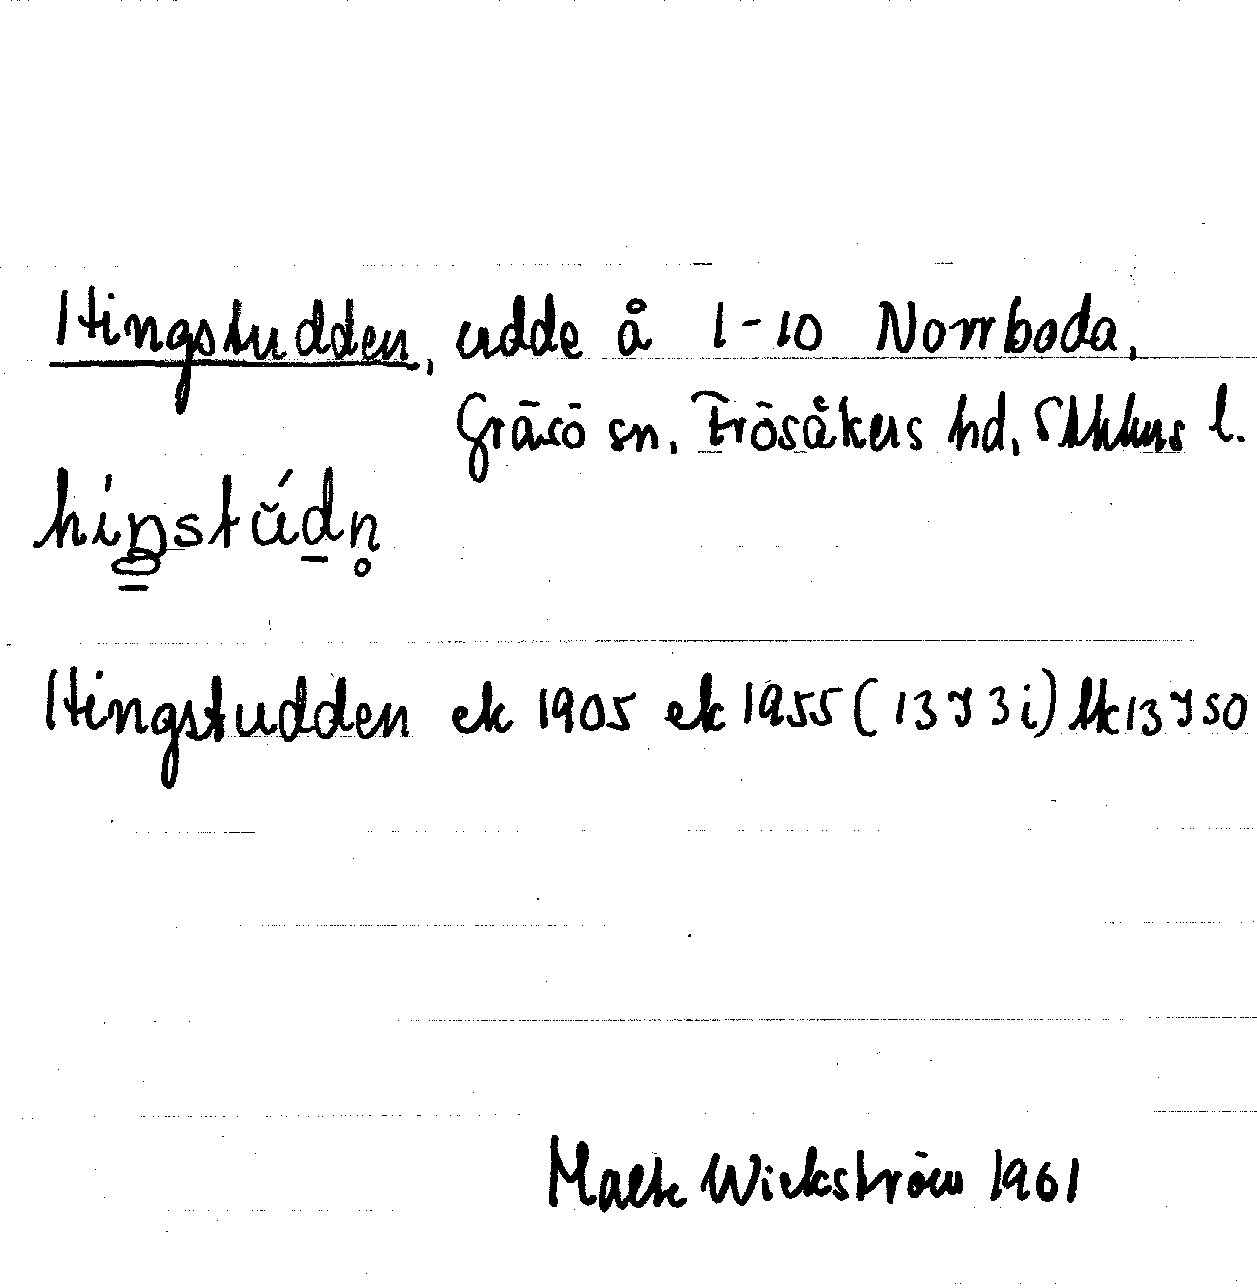 Hingstudden, udde å 1-10 Norrboda,
Gräsö sn, Frösåkers hd, Sthlms l.
Hingstudden ek 1905 ek 1955 (13 J 3 i) Mk 13 J SO
Malte Wickström 1961